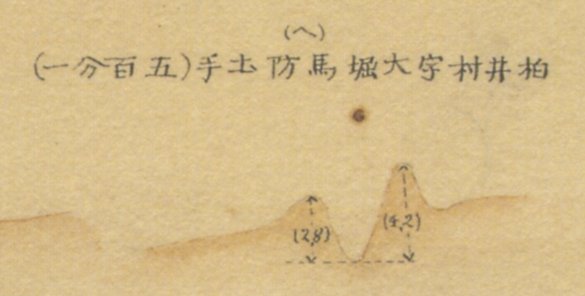 (ヘ)
柏井村字大堀馬防土手(五百分一)
(2,8)
(4,2)